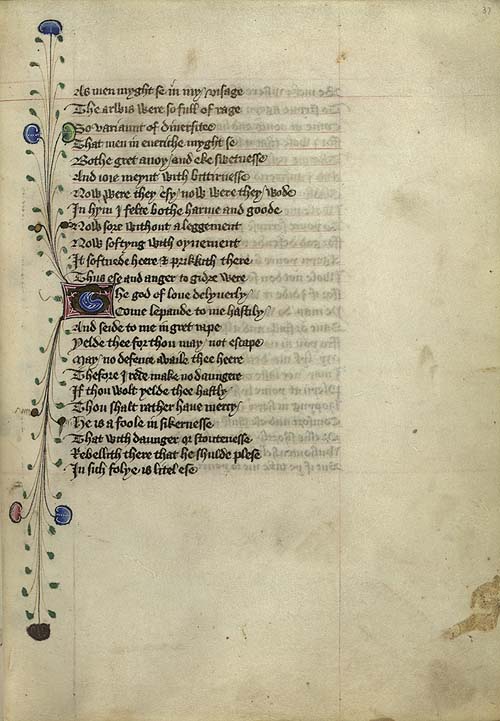 37
As men myght se in my visage
The arwis were so full of rage
So variaunt of diuersitee
That men in eueriche myght se
Bothe gret anoy / and eke swetnesse
And ioie meynt with bittirnesse
Now were they esy / now were they wode
In hym I felte bothe harme and goode
Now sore without aleggement
Now softyng with oynement
It softnede heere & prikkith there
Thus ese and anger to gidre were
The god of loue delyuerly
Come lepande to me hastily
And seide to me in gret rape
Yelde thee for thou may not escape
May no defence auaile thee heere
Therfore I rede make no daungere
If thou wolt yelde thee hastly
Thou shalt rather haue mercy
He is a foole in sikernesse
That with daunger or stoutenesse
Rebellith there that he shulde plese
In sich folye is litel ese